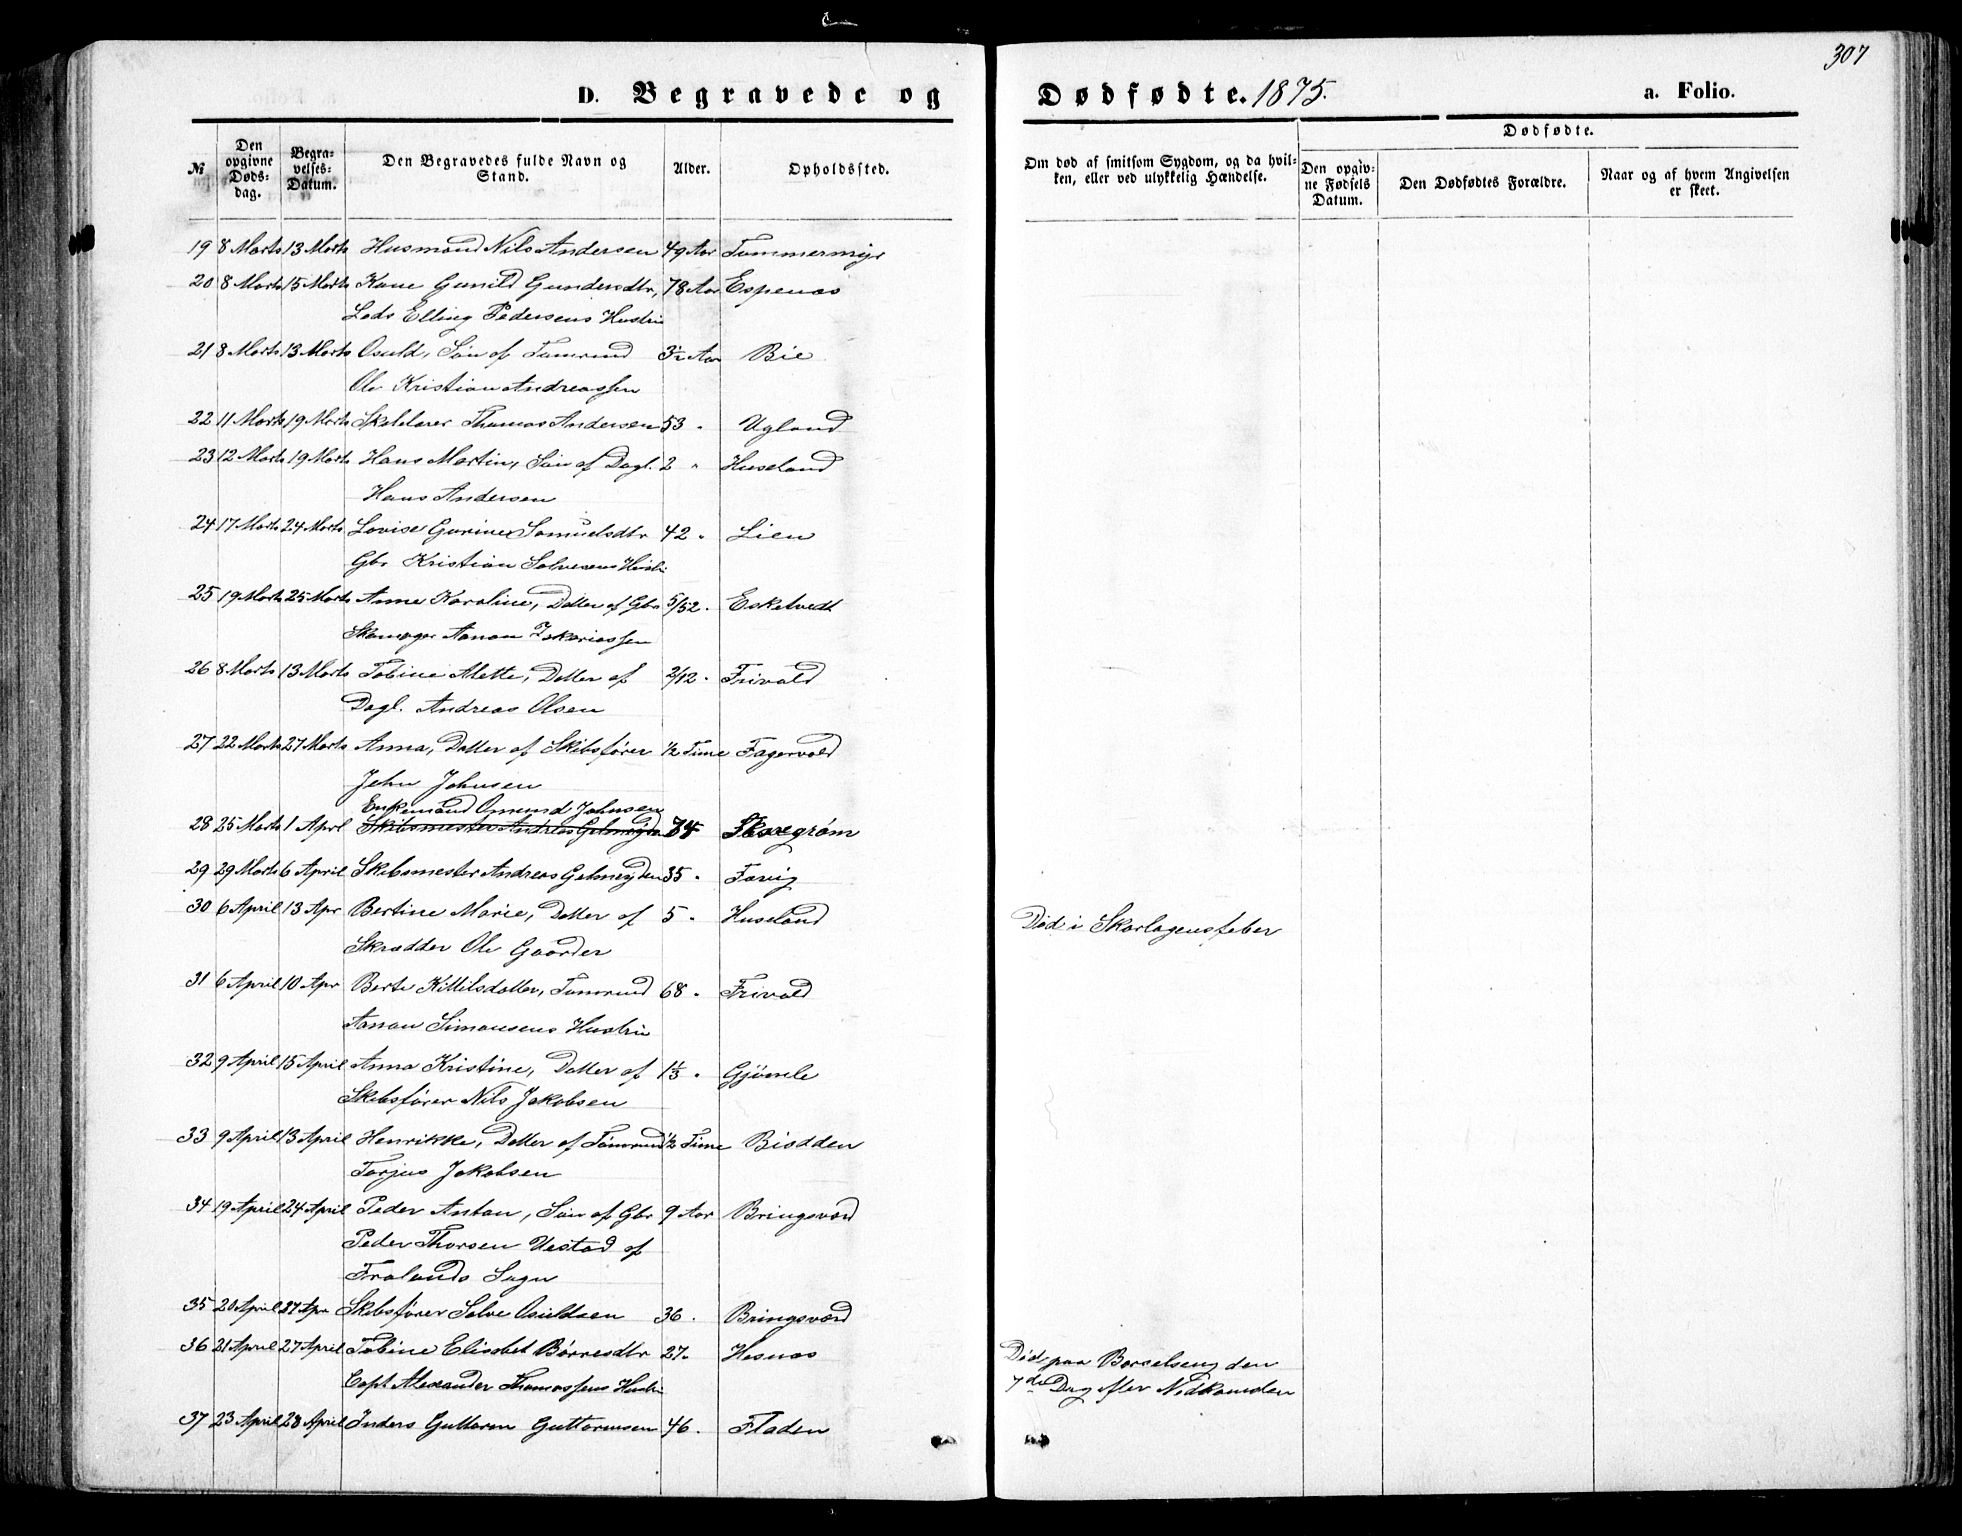 307
D. Begravede og Dødfødte. 1875. a. Folio.
№
Den opgivne Døds-dag.
Begra-velses-Datum.
Den Begravedes fulde Navn og Stand.
Alder.
Opholdssted.
Om død af smitsom Sygdom, og da hvil-ken, eller ved ulykkelig Hændelse.
Dødfødte.
Den opgiv-ne Fødsels Datum.
Den Dødfødtes Forældre.
Naar og af hvem Angivelsen er skeet.
19 8 Marts 13 Marts Husmand Nils Andersen 49 Aar Tømmermyr
20 8 Marts 15 Marts Kone Gunild Gundersdtr, 78 Aar Espenæs
Lods Elling Pedersens Hustru
21 8 Marts 13 Marts Osuld, Søn af Tømmd 3½ Aar Bie
Ole Kristian Andreassen
22 11 Marts 19 Marts Thomas Andersen 53 " Ugland
23 12 Marts 19 Marts Hans Martin, Søn af Dagl. 2 " Huseland
Hans Andersen
24 17 Marts 24 Marts Lovise Gurine Samuelsdtr 42 " Lien
Gbr Kristian Salvesens Hustru
25 19 Marts 25 Marts Anne Karoline, Datter af Gbr 5/52 " Eskelvedt
Skomager Aanon Zakariassen
26 8 Marts 13 Marts Tobine Mette, Datter af 2/12 " Frivold
Dagl. Andreas Olsen
27 22 Marts 27 Marts Anna, Datter af Skibsfører ½ Time Fagervold
John Johnsen
Enkemand Omund Johnsen
28 25 Marts 1 Aprl Skibsmester Andreas Gelmeyden 74 Skaregrøm
29 29 Marts 6 April Skibsmester Andreas Gelmeyden 35 " Fævig
30 6 April 13 Apr Bertine Marie, Datter af 5 " Huseland Død i Skarlagensfeber
Skrædder Ole Gaarder
31 6 April 10 Apr Berte Kittilsdatter, Tømmd 68 " Frivold
Aanon Simonsens Hustru
32 9 April 15 April Anna Kristine, Datter af 1⅓ " Gjømle
Skibsfører Nils Jakobsen
33 9 April 13 April Henrikke, Datter af Tømmd ½ Time Biodden
Torjus Jakobsen
34 19 April 24 April Peder Anton, Søn af Gbr 9 Aar Bringsværd
Peder Thorsen Uestad af
Frolands Sogn
35 20 April 27 Apr Skibsfører Salve Osuldsen 36 " Bringsværd
36 21 April 27 April Tobine Elisabet Børresdtr 27 " Hesnæs Død paa Barselseng den
Capt Alexander Thomassens Hustru 7de Dag efter Nedkomsten
37 23 April 28 April Inders Guttorm Guttormsen 46 " Fladen